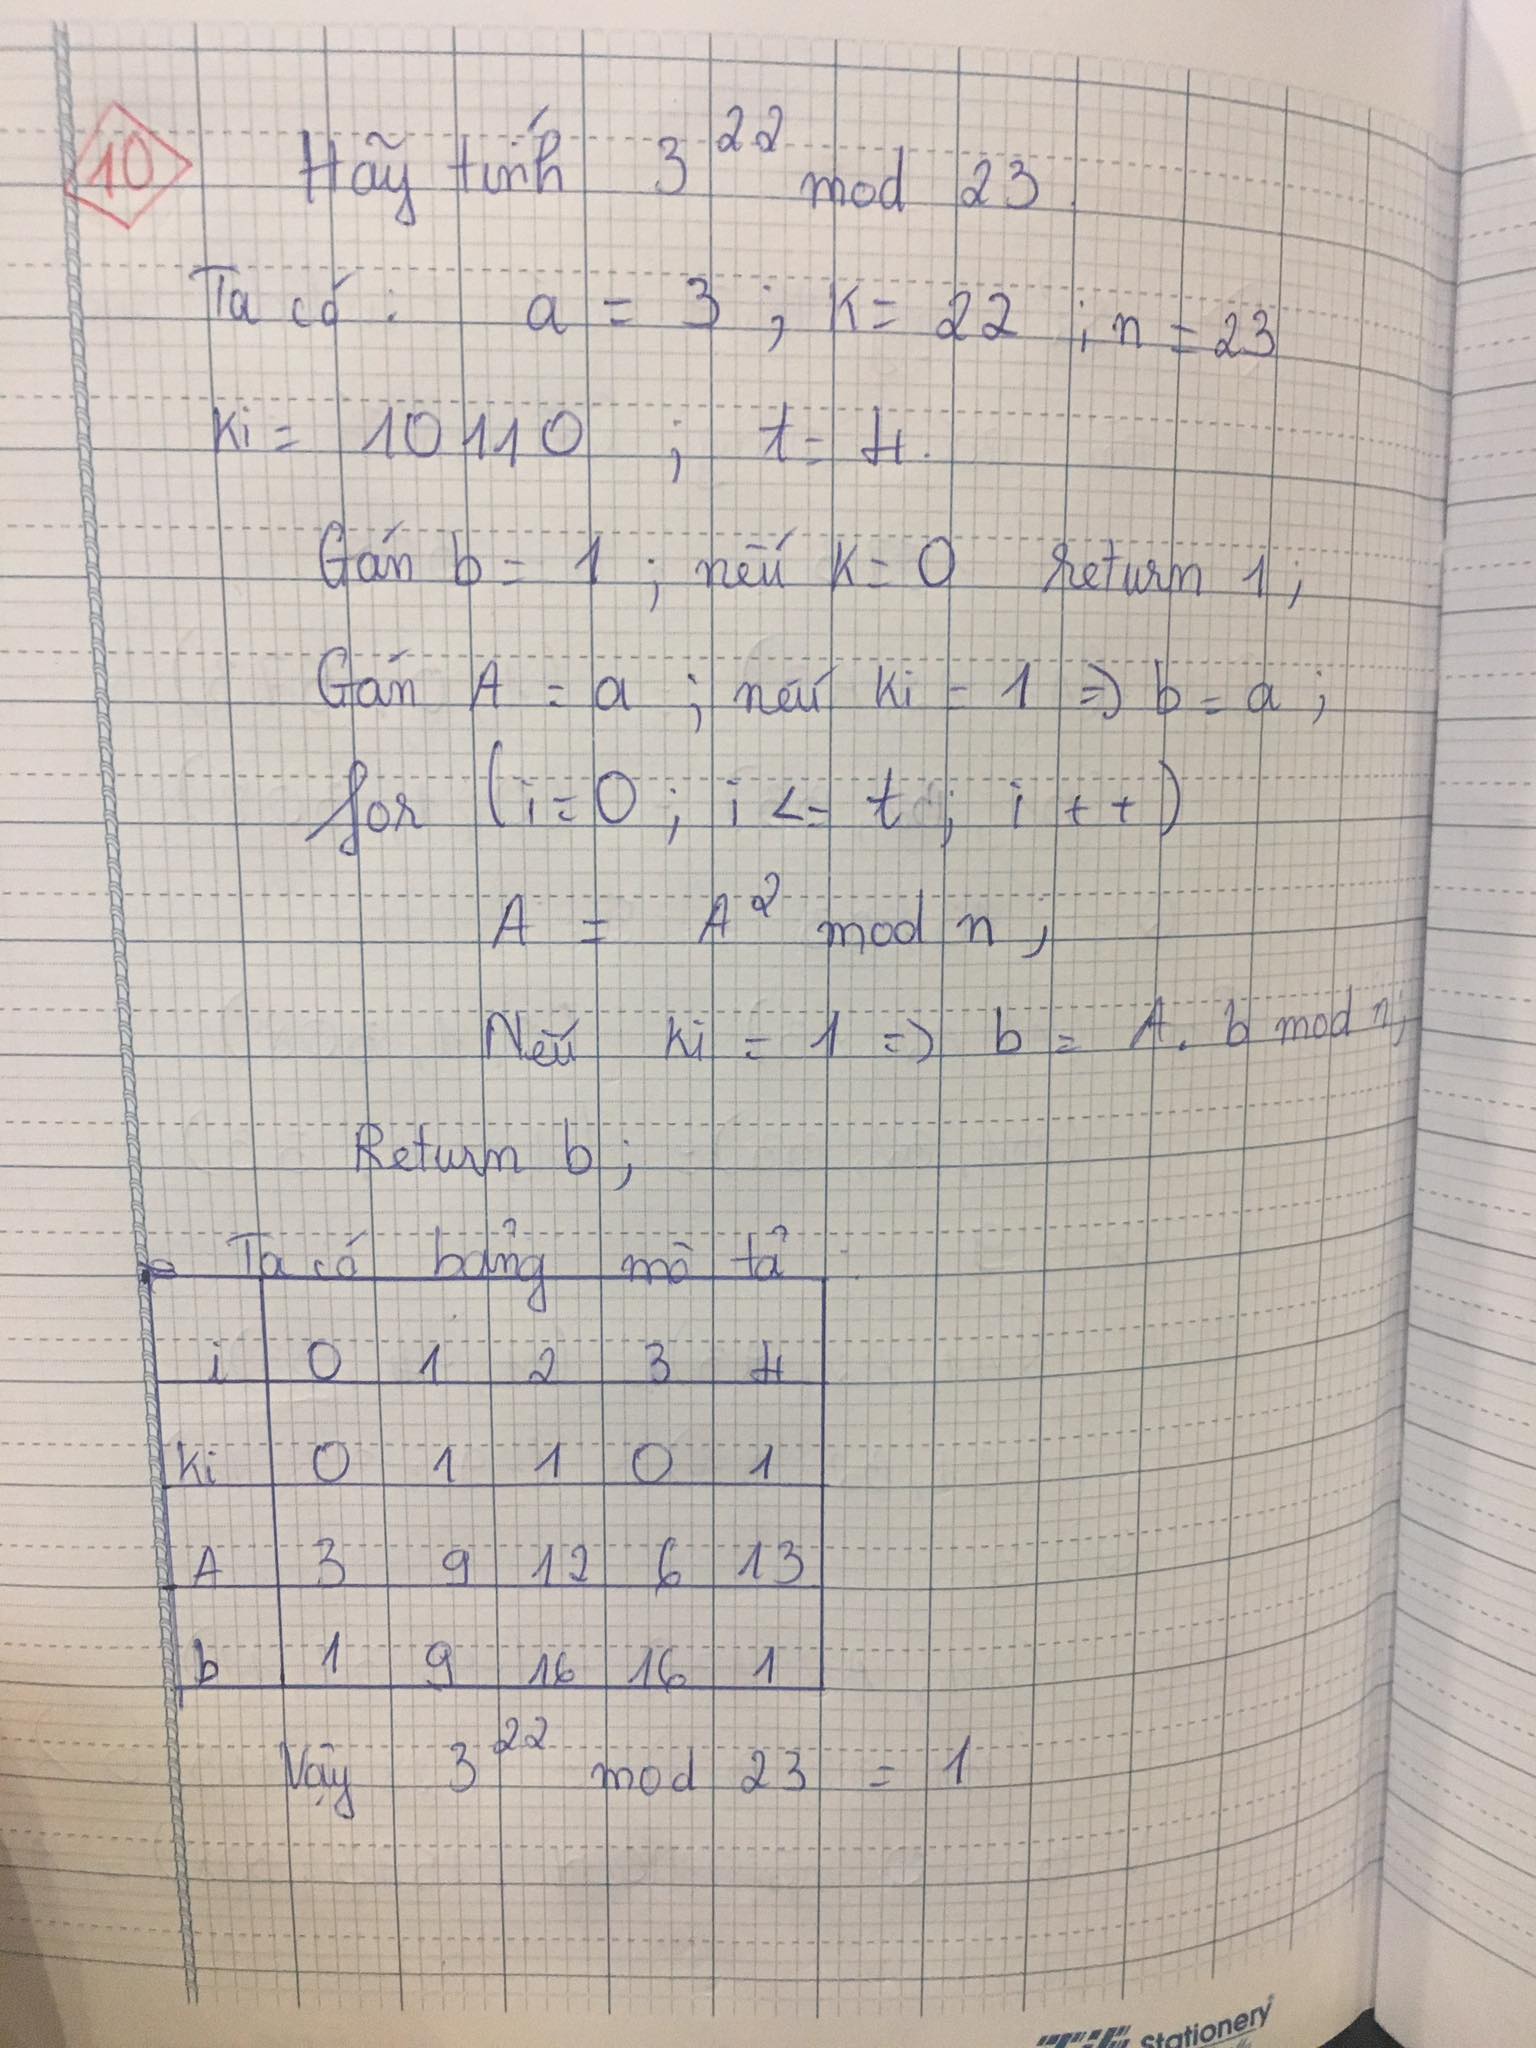 10
Hãy tính 3^22 mod 23.
Ta có: a = 3 ; k = 22 ; n = 23
ki = 10110 ; t = 4.
Gán b = 1 ; nếu k = 0 return 1 ;
Gán A = a ; nếu ki = 1 => b = a ;
for (i = 0 ; i <= t ; i ++)
A = A² mod n ;
Nếu ki = 1 => b = A. b mod n ;
Return b ;
Ta có bảng mô tả :
i 0 1 2 3 4
ki 0 1 1 0 1
A 3 9 12 6 13
b 1 9 16 16 1
Vậy 3^22 mod 23 = 1
Stationery